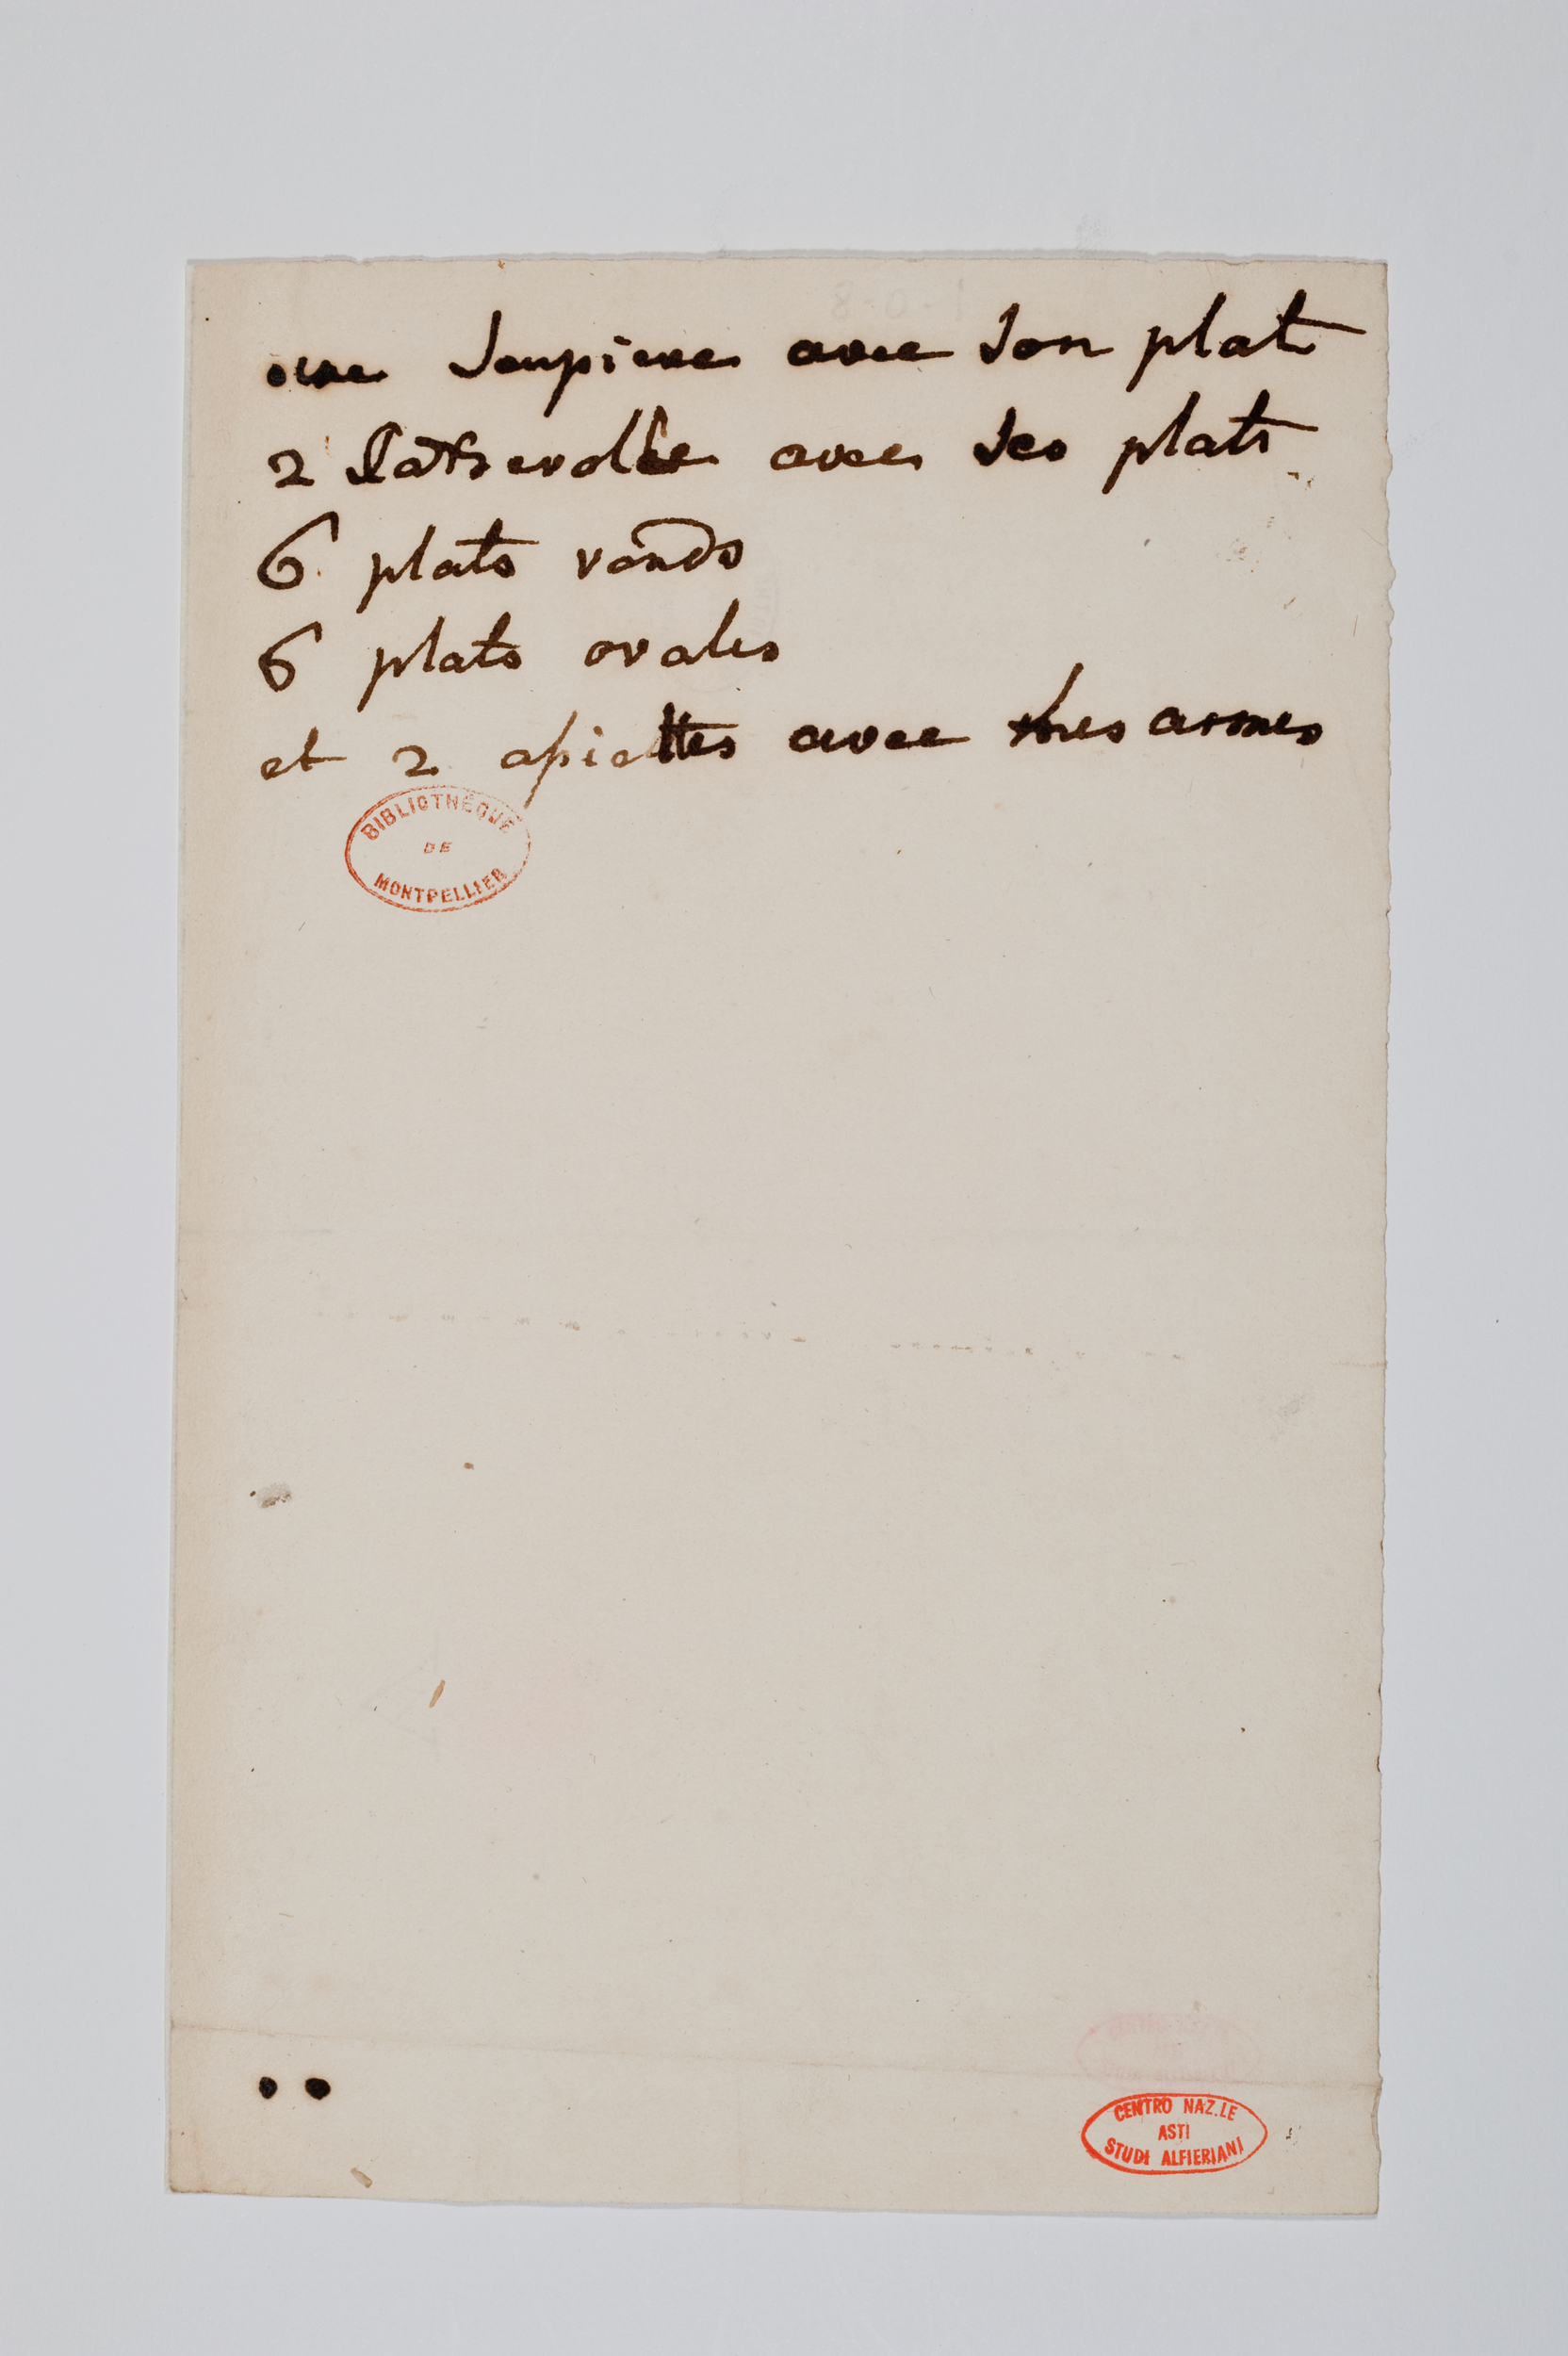 une soupiere avec son plat
2 avec ses plats
6 plats ronds
6 plats ovales
et 2 assiettes avec mes armes
BIBLIOTHÈQUE
DE
MONTPELLIER
CENTRO NAZ.LE
ASTI
STUDI ALFIERIANI